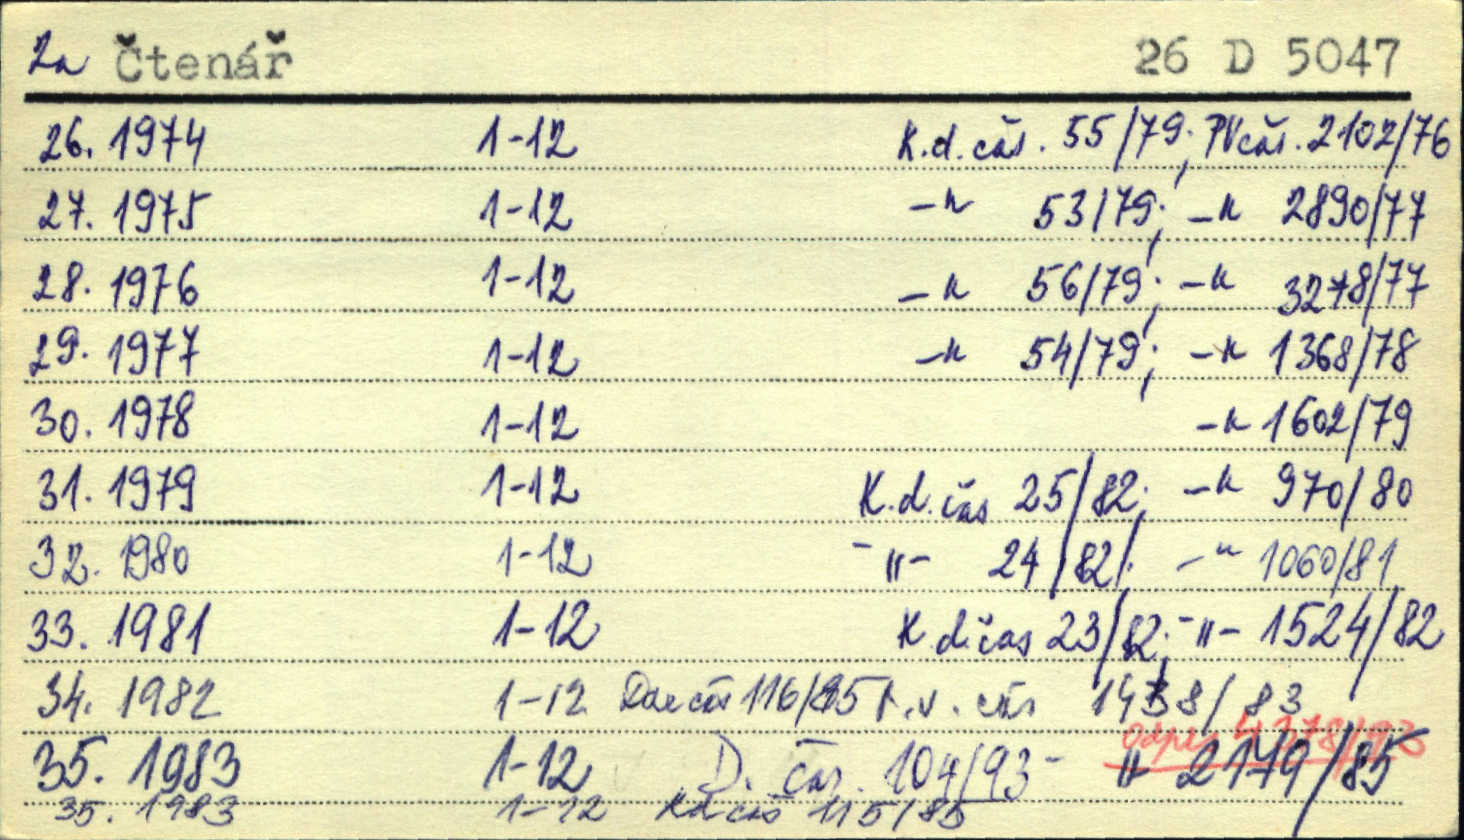 2a Čtenář 26 D 5047
26. 1974 1-12 K.d.čas. 55/79; PV čas. 2102/76
27. 1975 1-12 -"- 53/79; -"- 2890/77
28. 1976 1-12 -"- 56/79; -"- 3278/77
29. 1977 1-12 -"- 54/79; -"- 1368/78
30. 1978 1-12 -"- 1602/79
31. 1979 1-12 K.d.čas 25/82; -"- 970/80
32. 1980 1-12 -"- 24/82; -"- 1060/81
33. 1981 1-12 K.d.čas 23/82; -"- 1524/82
34. 1982 1-12 Dar čas 116/85 P.v. čas 1438/83
odpis 4378/93
35. 1983 1-12 D. čas. 104/93 -"- 2179/85
35. 1983 1-12 Kd čas 115/85